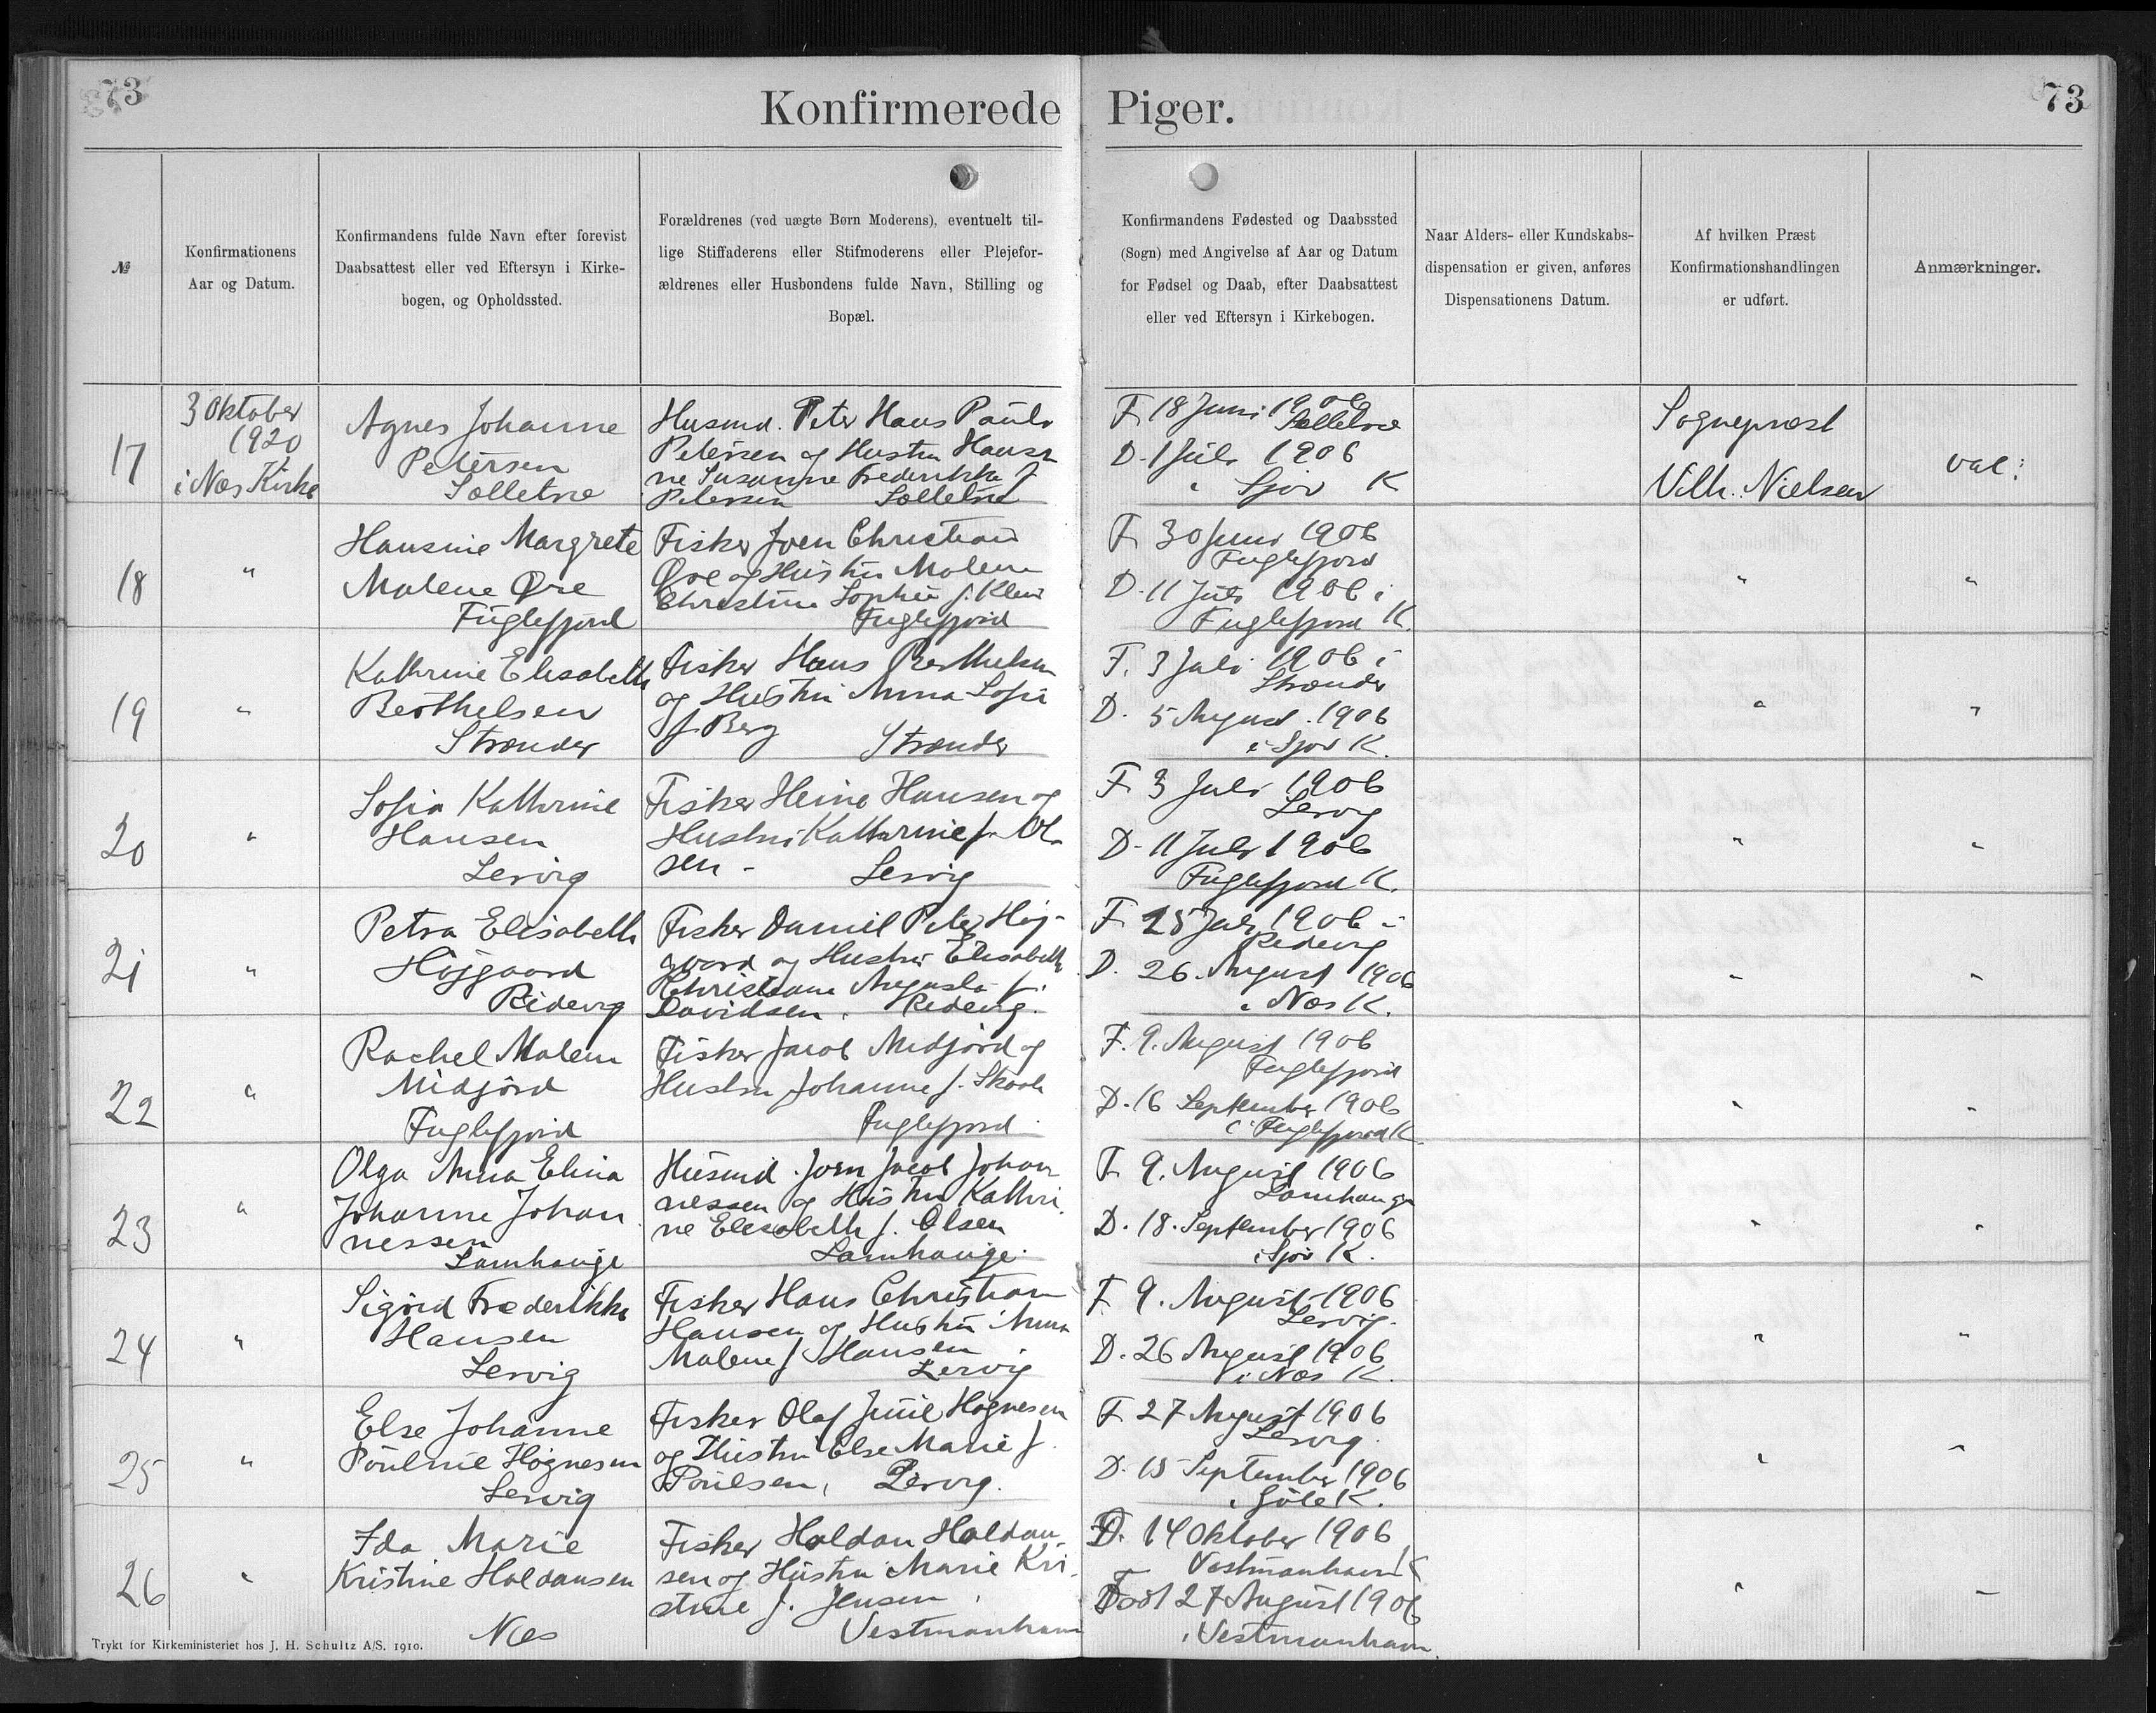 73
Konfirmerede Piger.
73
№
Konfirmationens
Aar og Datum.
Konfirmandens fulde Navn efter forevist
Daabsattest eller ved Eftersyn i Kirke-
bogen, og Opholdssted.
Forældrenes (ved uægte Børn Moderens), eventuelt til-
lige Stiffaderens eller Stifmoderens eller Plejefor-
ældrenes eller Husbondens fulde Navn, Stilling og
Bopæl.
Konfirmandens Fødested og Daabssted
(Sogn) med Angivelse af Aar og Datum
for Fødsel og Daab, efter Daabsattest
eller ved Eftersyn i Kirkebogen.
Naar Alders- eller Kundskabs-
dispensation er given, anføres
Dispensationens Datum.
Af hvilken Præst
Konfirmationshandlingen
er udført.
Anmærkninger.
17
3 Oktober
1920
i Nes Kirke
Agnes Johanne
Petersen
Selletræ
Husmd. Peter Hans Pauli
Petersen og Hustru Hansi
ne Susanne Frederikke f
Petersen Selletræ
F. 18 Juni 1906
Selletræ
D. 1 Juli 1906
i Sjov K
Sognepræst
Vilh. Nielsen
vac:
18
"
Hansine Margrete
Malene Øre
Fuglefjord
Fisker Joen Christian
Øre og Hustru Malene
Christine Sophie f. Klein
Fuglefjord
F. 30 Juni 1906
Fuglefjord
D. 11 Juli 1906 i
Fuglefjord K.
"
"
19
"
Kathrine Elisabeth
Berthelsen
Strænder
Fisker Hans Berthelsen
og Hustru Anna Sofie
f. Berg Strænder
F. 3 Juli 1906 i
Strænder
D. 5 August. 1906
i Sjov K.
"
"
20
"
Sofia Kathrine
Hansen
Lervig
Fisker Heine Hansen og
Hustru Kathrine f. Ol-
sen - Lervig
F. 3 Juli 1906
Lervig
D. 11 Juli 1906
Fuglefjord K.
"
"
21
"
Petra Elisabeth
Højgaard
Ridevig
Fisker Daniel Peter Høj-
gaard og Hustru Elisabeth
Christiane Augusta f.
Davidsen. Ridevig.
F. 25 Juli 1906 i
Ridevig
D. 26. August 1906
i Nes K.
"
"
22
"
Rachel Malene
Midjord
Fuglefjord
Fisker Jacob Midjord og
Hustru Johanne f. Skaale
Fuglefjord.
F. 9. August 1906
Fuglefjord
D. 16 September 1906
i Fuglefjord K.
"
"
23
"
Olga Anna Elina
Johanne Johan
nessen
Lamhauge
Husmd. Joen Jacob Johan
nessen og Hustru Kathri
ne Elisabeth f. Olsen
Lamhauge.
F. 9. August 1906
Lamhauge
D. 18. September 1906
i Sjov K.
"
"
24
"
Sigrid Frederikke
Hansen
Lervig
Fisker Hans Christian
Hansen og Hustru Anna
Malene f. Hansen
Lervig
F. 9. August 1906
Lervig.
D. 26 August 1906
i Nes K.
"
"
25
"
Else Johanne
Pouline Høgnesen
Lervig
Fisker Olaf Juul Høgnesen
og Hustru Else Marie f.
Poulsen, Lervig.
F. 27 August 1906
Lervig.
D. 15 September 1906
i Gøte K.
"
"
26
"
Ida Marie
Kristine Haldansen
Nes
Fisker Haldan Haldan
sen og Hustru Marie Kri
stine f. Jensen,
Vestmanhavn
D. 14 Oktober 1906
Vestmanhavn K
Født 27 August 1906
i Vestmanhavn.
"
"
Trykt for Kirkeministeriet hos J. H. Schultz A/S. 1910.